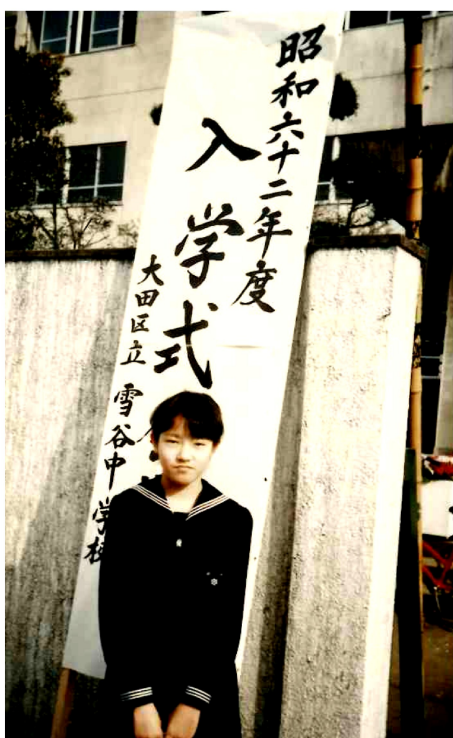 昭和六十二年度
入学式
大田区立雪谷中学校